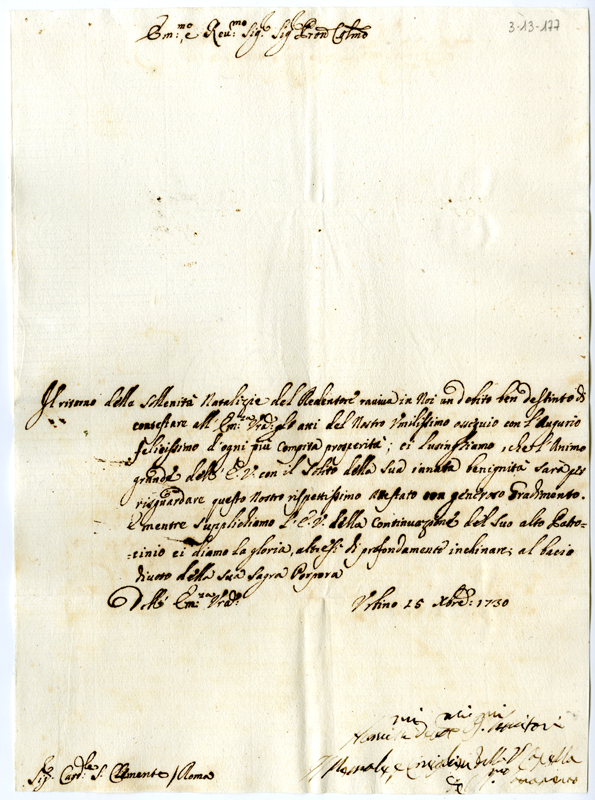 3-13-177
Em:mo e Reu:mo Sig:e Sig Pron Colmo
Il ritorno della sollenità Natalizie del Redentore raviua in Noi un debito ben destinto di
contestare all' Em: Vra: gl'ani del Nostro Vmilissimo ossequio con l'Augurio
felicissimo d'ogni più Compita prosperità; ci lusinghiamo, che l'Animo
grande dell' E.V. con il Solito della Sua innata benignità Sarà per
risguardare questo Nostro rispettissimo attestato con generoso Gradimento.
e mentre Supplichiamo l'E.V. della Continuazione del Suo alto Patro-
-cinio ci diamo la gloria, altresì di profondamente inclinarci al bacio
diuoto della Sua Sagra Porpora
Dell' Em: Vra:
Vrbino 25 Xbre: 1730
Sig. Card:le S. Clemente / Roma